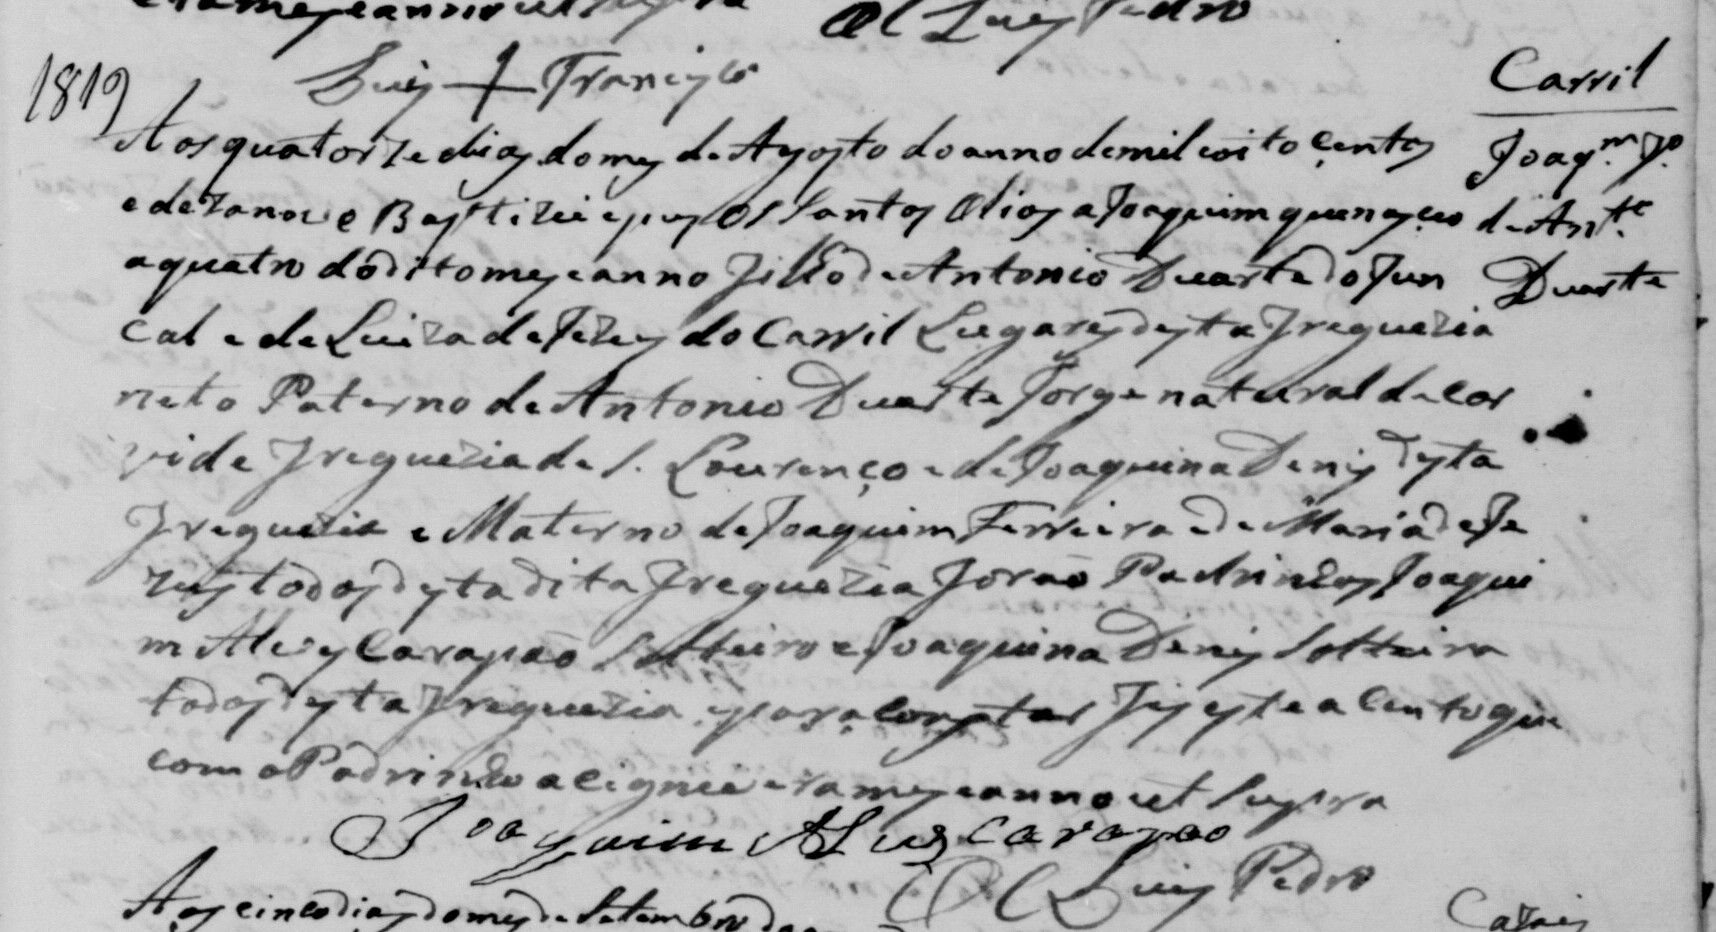 era mez e anno ut supra O C Luiz Pedro
Luiz + Francisco
1819
Carril
Joaqm. fo.
de Anto.
Duarte
Aos quatorze dias do mes de Agosto do anno de mil e oito çentos
e dezanove Baptizei e pus os Santos Olios a Joaquim que nasçeo
a quatro do dito mes e anno filho de Antonio Duarte do Fun
cal e de Luiza de Jezus do Carril Lugares desta freguezia
neto Paterno de Antonio Duarte Jorge natural de Cor
vide freguezia de S. Lourenço e de Joaquina Denis desta
freguezia e Materno de Joaquim Ferreira e de Maria de Je
zus todos desta dita freguezia forão Padrinhos Joaqui
m Alves Carapao Solteiro e Joaquina Denis Solteira
todos desta freguezia e para constar fis este acento que
com o Padrinho acignei era mes e anno ut supra
Joaquim Alves Carapao
O C Luis Pedro
Aos cinco dias do mes de Setembro do